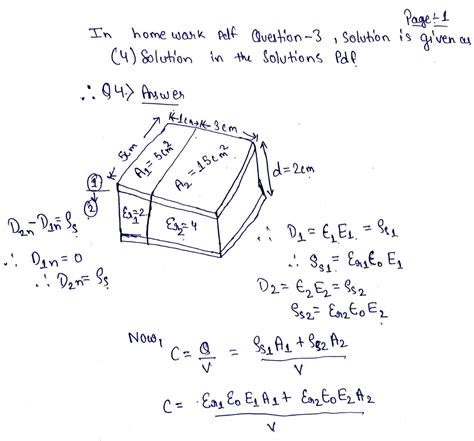 Page:-1
In homework Pdf Question-3, Solution is given as
(4) Solution in the Solutions Pdf
∴ Q4.> Answer
1cm 3cm
5cm
A₁ = 5cm²
A₂ = 15cm²
d = 2cm
①
②
εr₁ = 2
εr₂ = 4
D₂n − D₁n = ρs
∴ D₁n = 0
∴ D₂n = ρs
∵ D₁ = ε₁E₁ = ρs1
∴ ρs1 = εr₁ε₀E₁
D₂ = ε₂E₂ = ρs2
ρs2 = εr₂ε₀E₂
Now,
C = Q/V = (ρs1A₁ + ρs2A₂)/V
C = (εr₁ε₀E₁A₁ + εr₂ε₀E₂A₂)/V